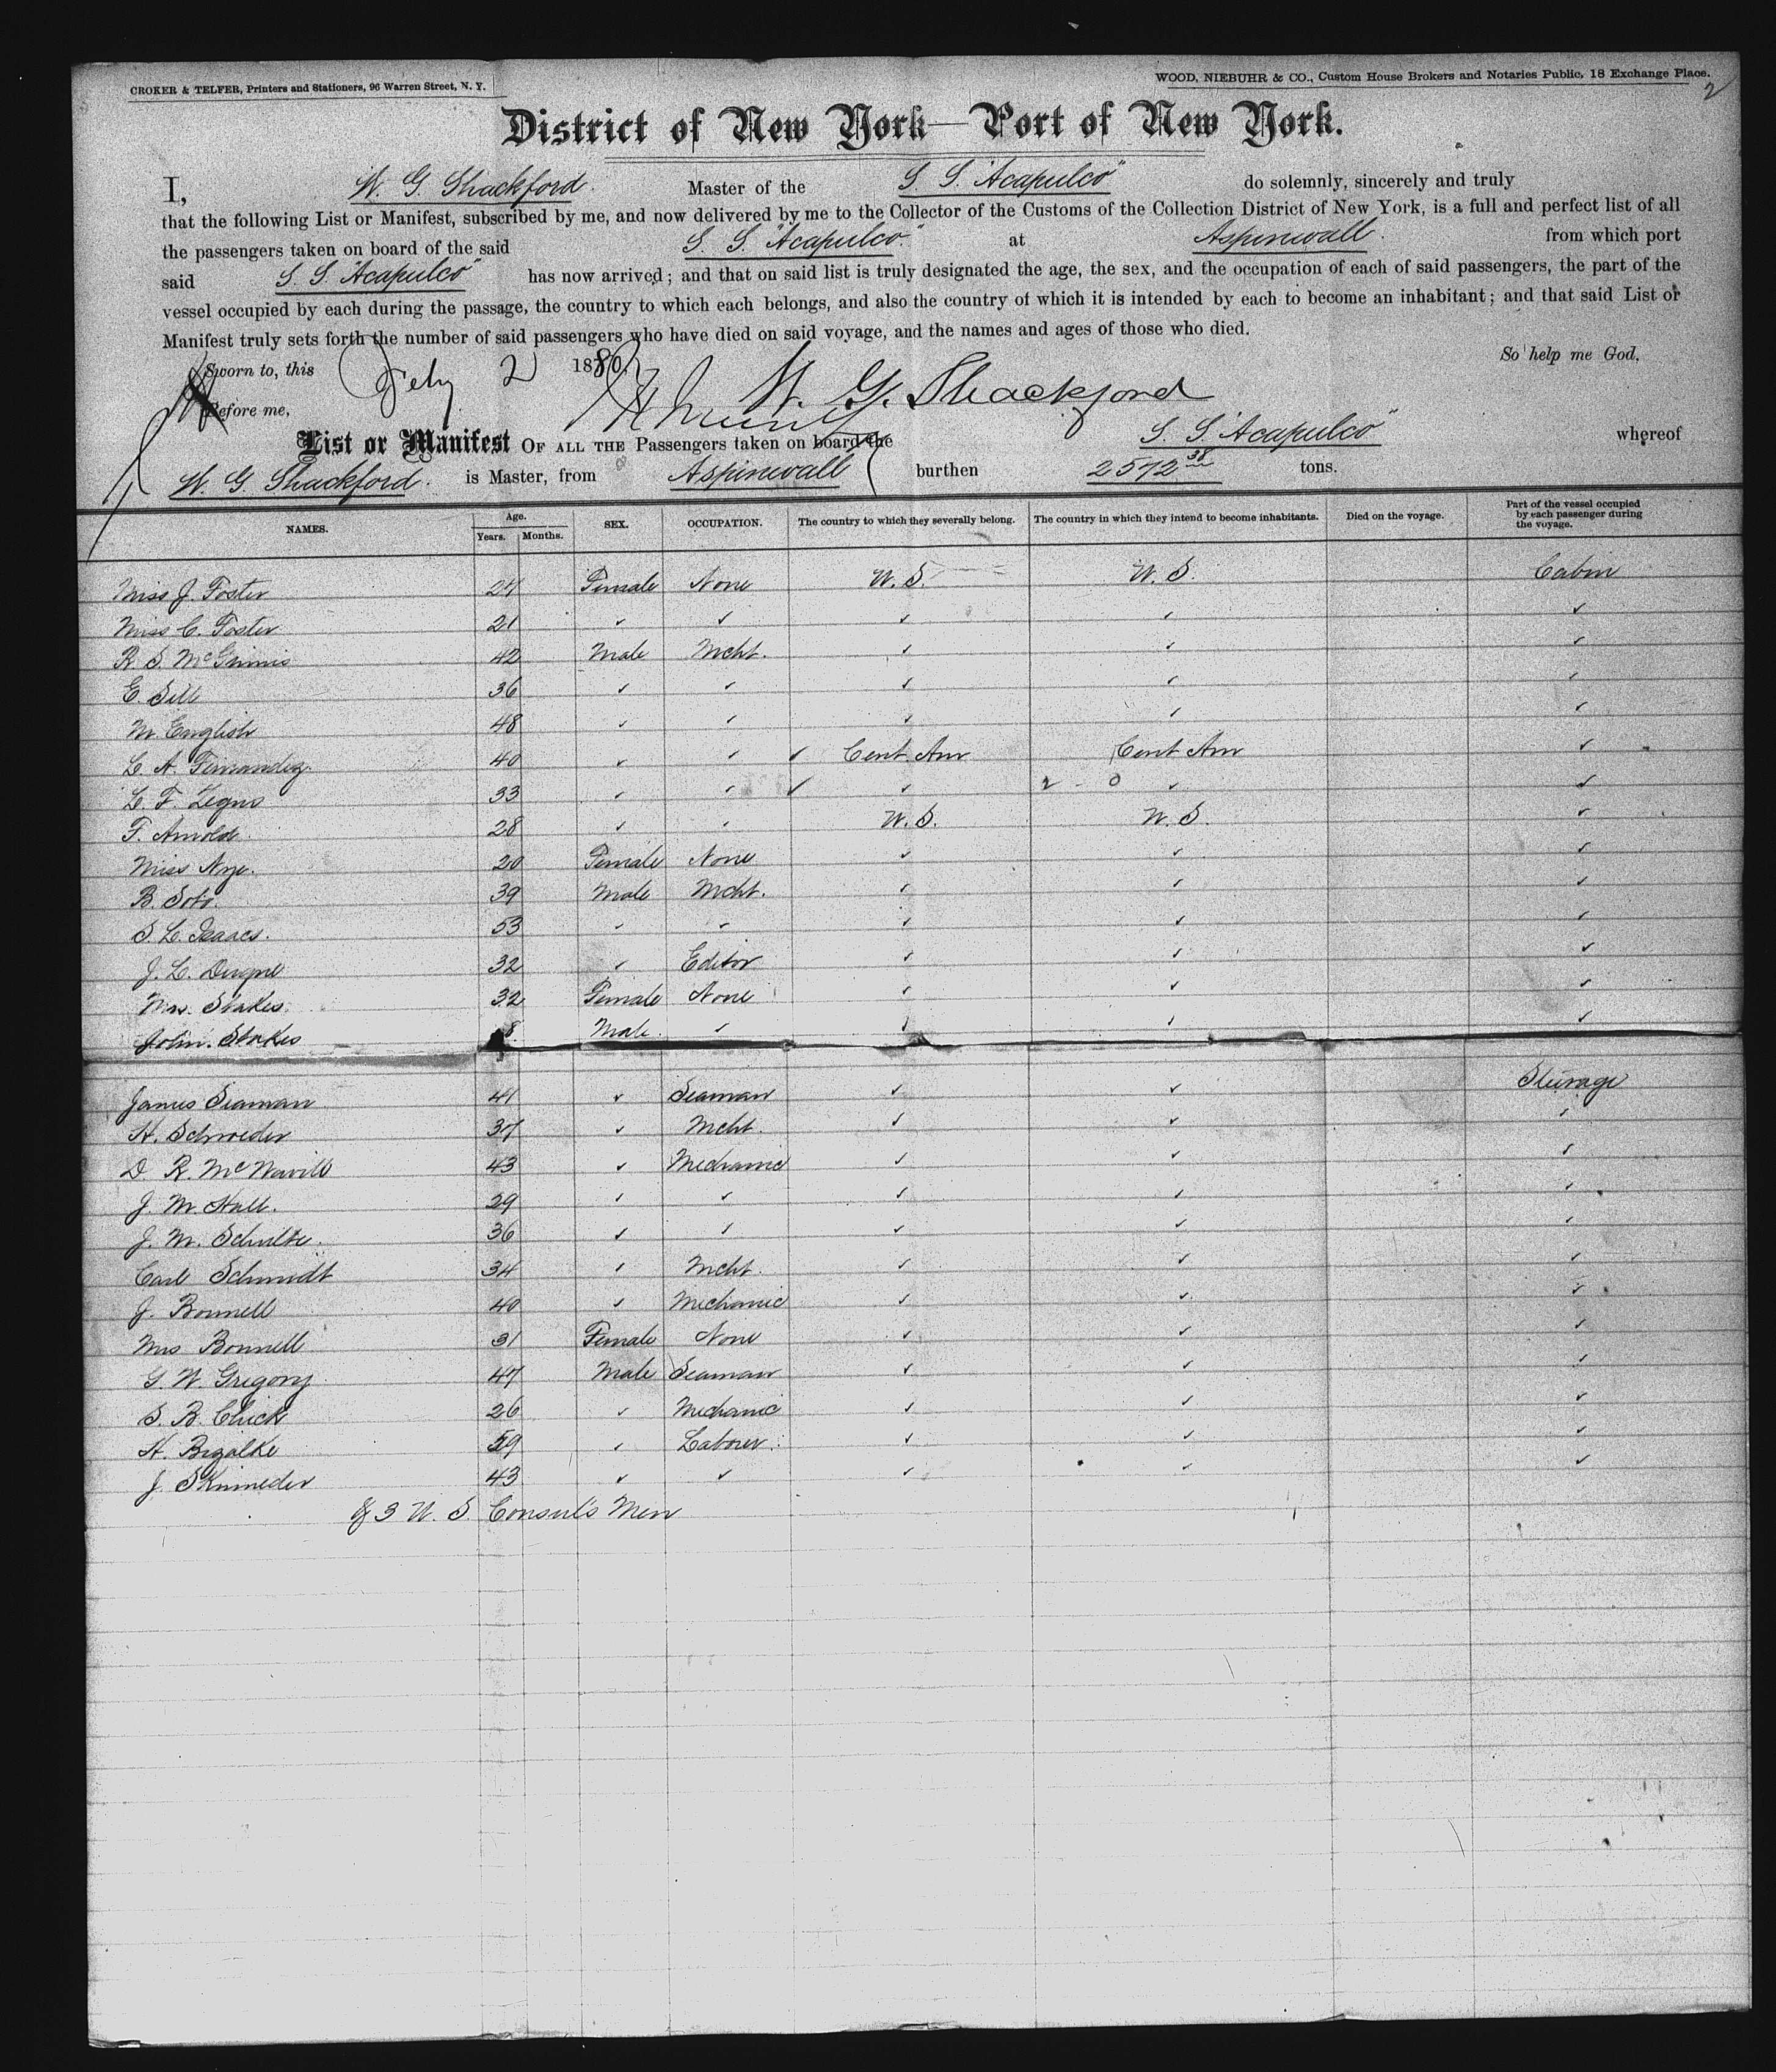 CROKER & TELFER, Printers and Stationers, 96 Warren Street, N. Y.
WOOD, NIEBUHR & CO., Custom House Brokers and Notaries Public, 18 Exchange Place.
2
District of New York—Port of New York.
I, W. G. Shackford. Master of the S. S. "Acapulco" do solemnly, sincerely and truly
that the following List or Manifest, subscribed by me, and now delivered by me to the Collector of the Customs of the Collection District of New York, is a full and perfect list of all
the passengers taken on board of the said S. S. "Acapulco." at Aspinwall. from which port
said S. S. "Acapulco" has now arrived; and that on said list is truly designated the age, the sex, and the occupation of each of said passengers, the part of the
vessel occupied by each during the passage, the country to which each belongs, and also the country of which it is intended by each to become an inhabitant; and that said List or
Manifest truly sets forth the number of said passengers who have died on said voyage, and the names and ages of those who died.
So help me God.
Sworn to, this Feby 2 1880
W. G. Shackford
Before me,
List or Manifest OF ALL THE Passengers taken on board the S. S. "Acapulco" whereof
W. G. Shackford. is Master, from Aspinwall burthen 2572 38 tons.
NAMES. Age. Years. Months. SEX. OCCUPATION. The country to which they severally belong. The country in which they intend to become inhabitants. Died on the voyage. Part of the vessel occupied by each passenger during the voyage.
Miss J. Foster 24 Female None U. S. U. S. Cabin
Miss C. Foster 21 ✓ ✓ ✓ ✓ ✓
R. S. McGinnis 42 Male Mcht. ✓ ✓ ✓
E. Sill 36 ✓ ✓ ✓ ✓ ✓
M. English 48 ✓ ✓ ✓ ✓ ✓
L. A. Fernandez 40 ✓ ✓ ✓ Cent. Am Cent Am ✓
L. F. 33 ✓ ✓ ✓ ✓ 2 - 0 ✓ ✓
F. Arnold 28 ✓ ✓ U. S. U. S. ✓
Miss Nye. 20 Female None ✓ ✓ ✓
B. Soto. 39 Male Mcht. ✓ ✓ ✓
S. L. Isaacs. 53 ✓ ✓ ✓ ✓ ✓
J. L. 32 ✓ Editor ✓ ✓ ✓
Mrs. Stakes. 32 Female None ✓ ✓ ✓
John. Stakes 8. Male. ✓ ✓ ✓ ✓
James Seaman 41 ✓ Seaman ✓ ✓ Steerage
H. Schroeder 37 ✓ Mcht. ✓ ✓ ✓
D. R. 43 ✓ Mechanic ✓ ✓ ✓
J. M. Hall. 29 ✓ ✓ ✓ ✓ ✓
J. M. Schulte. 36 ✓ ✓ ✓ ✓ ✓
Carl Schmidt 34 ✓ Mcht. ✓ ✓ ✓
J. Bonnell 40 ✓ Mechanic ✓ ✓ ✓
Mrs Bonnell 31 Female None ✓ ✓ ✓
G. W. Gregory 47 Male Seaman ✓ ✓ ✓
S. B. Chick 26 ✓ Mechanic ✓ ✓ ✓
H. Bigalke 59 ✓ Laborer. ✓ ✓ ✓
J. 43 ✓ ✓ ✓ ✓ ✓
& 3 U. S. Consul's Men